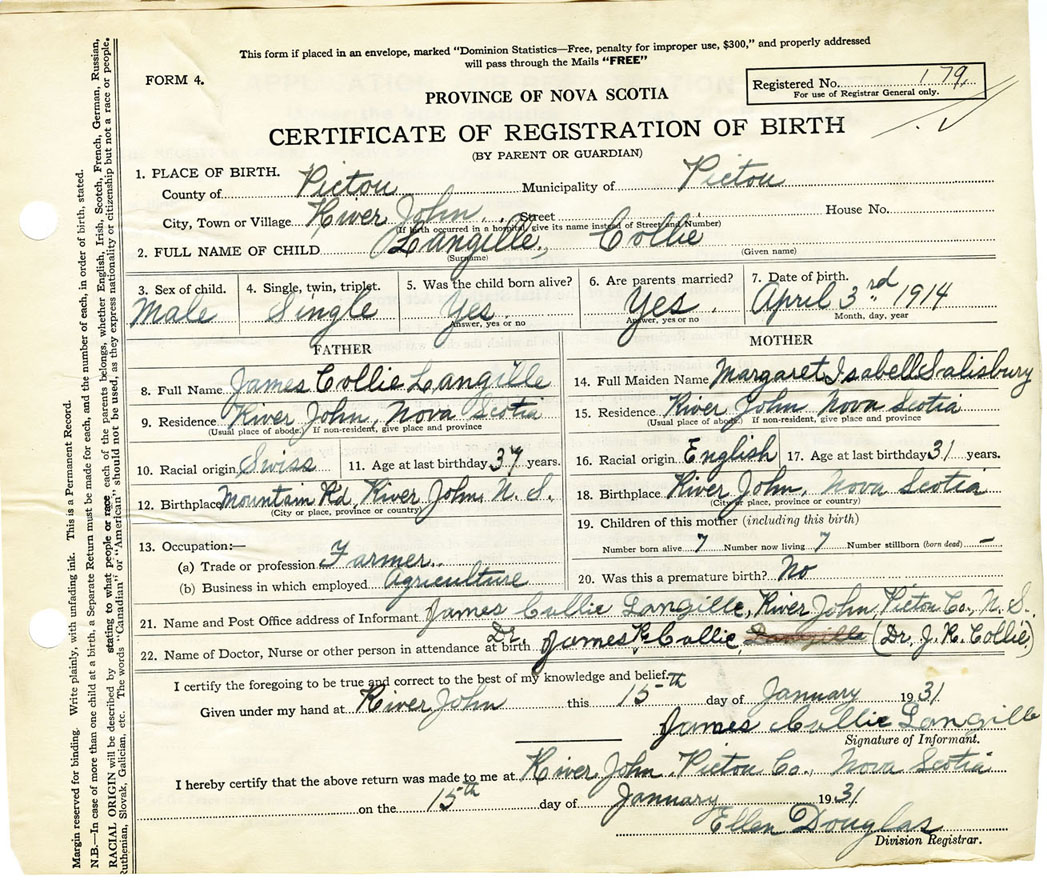 This form if placed in an envelope, marked "Dominion Statistics—Free, penalty for improper use, $300," and properly addressed
will pass through the Mails "FREE"
FORM 4.
Registered No. 179
For use of Registrar General only.
PROVINCE OF NOVA SCOTIA
CERTIFICATE OF REGISTRATION OF BIRTH
(BY PARENT OR GUARDIAN)
1. PLACE OF BIRTH.
County of Pictou Municipality of Pictou
City, Town or Village River John Street House No.
(If birth occurred in a hospital, give its name instead of Street and Number)
2. FULL NAME OF CHILD Langille, Collie
(Surname) (Given name)
3. Sex of child. Male
4. Single, twin, triplet. Single
5. Was the child born alive? Yes
Answer, yes or no
6. Are parents married? Yes
Answer, yes or no
7. Date of birth. April 3rd 1914
Month, day, year
FATHER
8. Full Name James Collie Langille
9. Residence River John, Nova Scotia
(Usual place of abode. If non-resident, give place and province
10. Racial origin Swiss 11. Age at last birthday 37 years.
12. Birthplace Mountain Rd, River John, N. S.
(City or place, province or country)
13. Occupation:—
(a) Trade or profession Farmer
(b) Business in which employed Agriculture
MOTHER
14. Full Maiden Name Margaret Isabell Salisbury
15. Residence River John, Nova Scotia
(Usual place of abode.) If non-resident, give place and province
16. Racial origin English 17. Age at last birthday 31 years.
18. Birthplace River John, Nova Scotia
(City or place, province or country)
19. Children of this mother (including this birth)
Number born alive 7 Number now living 7 Number stillborn (born dead) —
20. Was this a premature birth? No
21. Name and Post Office address of Informant James Collie Langille, River John, Pictou Co., N. S.
22. Name of Doctor, Nurse or other person in attendance at birth Dr. James R. Collie, Langille (Dr. J. R. Collie)
I certify the foregoing to be true and correct to the best of my knowledge and belief.
Given under my hand at River John this 15th day of January 1931
James Collie Langille
Signature of Informant.
I hereby certify that the above return was made to me at River John, Pictou Co., Nova Scotia
on the 15th day of January 1931
Ellen Douglas
Division Registrar.
Margin reserved for binding. Write plainly, with unfading ink. This is a Permanent Record.
N.B.—In case of more than one child at a birth, a Separate Return must be made for each, and the number of each, in order of birth, stated.
RACIAL ORIGIN will be described by stating to what people or race each of the parents belongs, whether English, Irish, Scotch, French, German, Russian,
Ruthenian, Slovak, Galician, etc. The words "Canadian" or "American" should not be used, as they express nationality or citizenship but not a race or people.